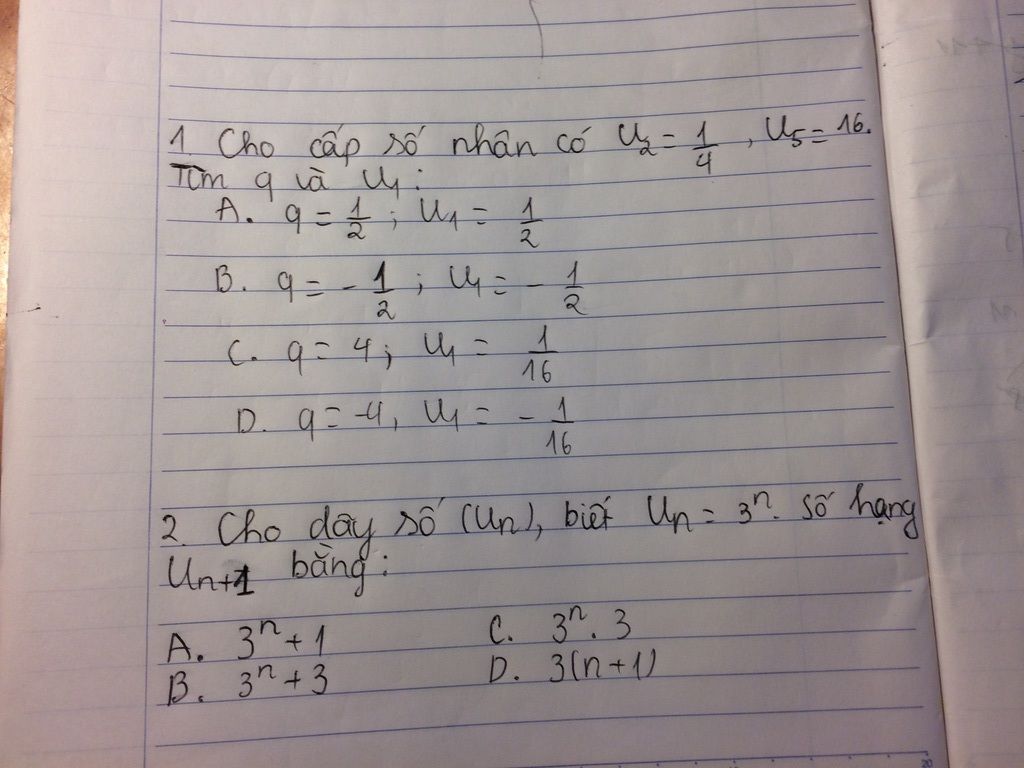 1 Cho cấp số nhân có U₂ = 1/4, U₅ = 16.
Tìm q và U₁ :
A. q = 1/2 ; U₁ = 1/2
B. q = - 1/2 ; U₁ = - 1/2
C. q = 4 ; U₁ = 1/16
D. q = -4, U₁ = - 1/16
2. Cho dãy số (Uₙ), biết Uₙ = 3ⁿ. số hạng
Uₙ₊₁ bằng :
A. 3ⁿ + 1 C. 3ⁿ . 3
B. 3ⁿ + 3 D. 3(n + 1)